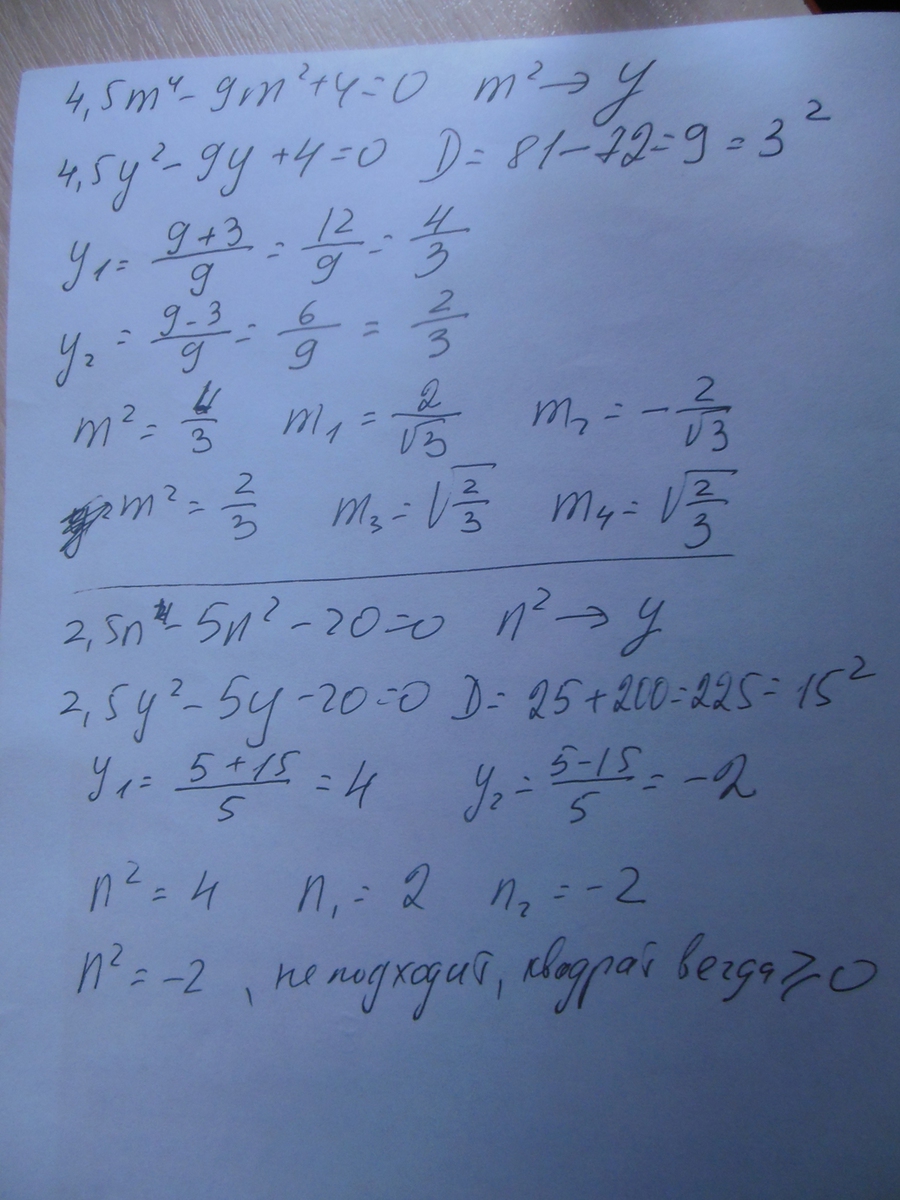 4,5m⁴ - 9m² + 4 = 0 m² → y
4,5y² - 9y + 4 = 0 D = 81 - 72 = 9 = 3²
y₁ = (9+3)/9 = 12/9 = 4/3
y₂ = (9-3)/9 = 6/9 = 2/3
m² = 4/3 m₁ = 2/√3 m₂ = -2/√3
m² = 2/3 m₃ = √(2/3) m₄ = √(2/3)
2,5n⁴ - 5n² - 20 = 0 n² → y
2,5y² - 5y - 20 = 0 D = 25 + 200 = 225 = 15²
y₁ = (5+15)/5 = 4 y₂ = (5-15)/5 = -2
n² = 4 n₁ = 2 n₂ = -2
n² = -2 , не подходит, квадрат всегда ≥ 0